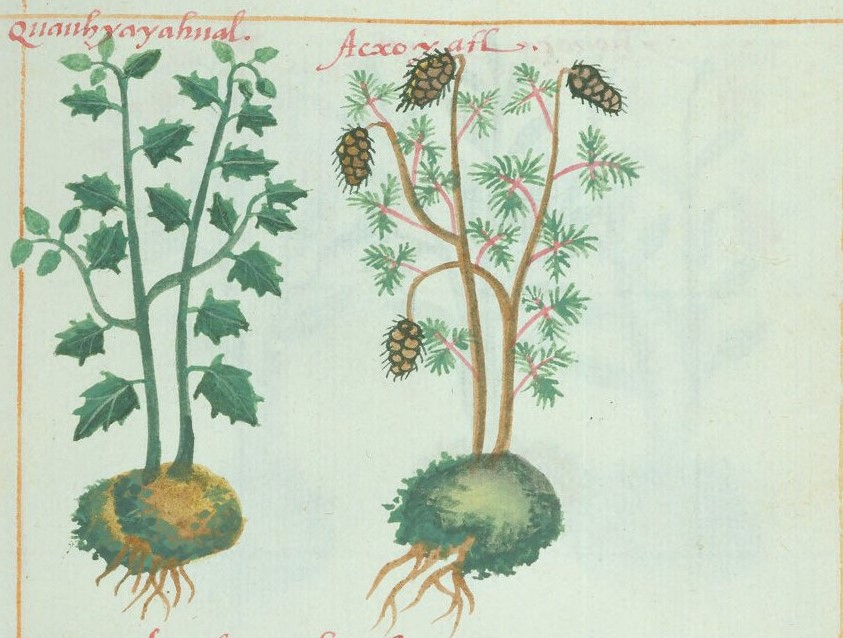 Quauhyayahual.
Acxoyatl.